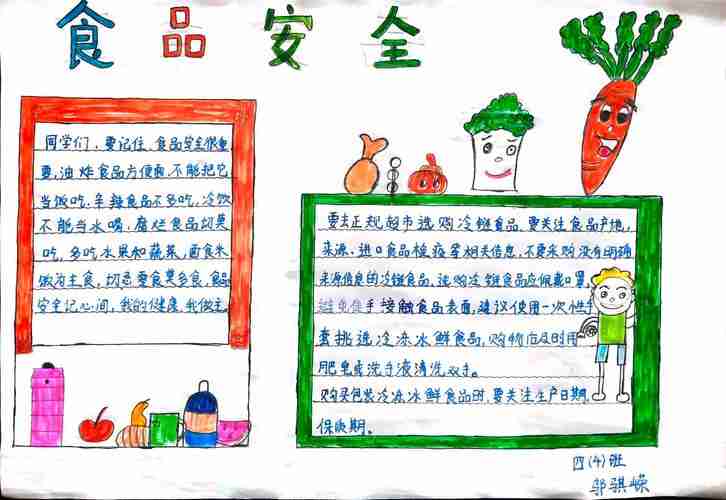 食品安全
同学们，要记住，食品安全很重
要，油炸食品方便面，不能把它
当饭吃，辛辣食品不多吃，冷饮
不能当水喝，腐烂食品切莫
吃，多吃水果和蔬菜，面食米
饭为主食，切忌零食莫多食，食品
安全记心间，我的健康，我做主。
要去正规超市选购冷链食品，要关注食品产地，
来源、进口食品检疫等相关信息，不要采购没有明确
来源信息的冷链食品，选购冷链食品应佩戴口罩，
避免徒手接触食品表面，建议使用一次性手
套挑选冷冻冰鲜食品，购物应及时用
肥皂或洗手液清洗双手。
购买包装冷冻冰鲜食品时，要关注生产日期，
保质期。
四(4)班
邬骐嵘